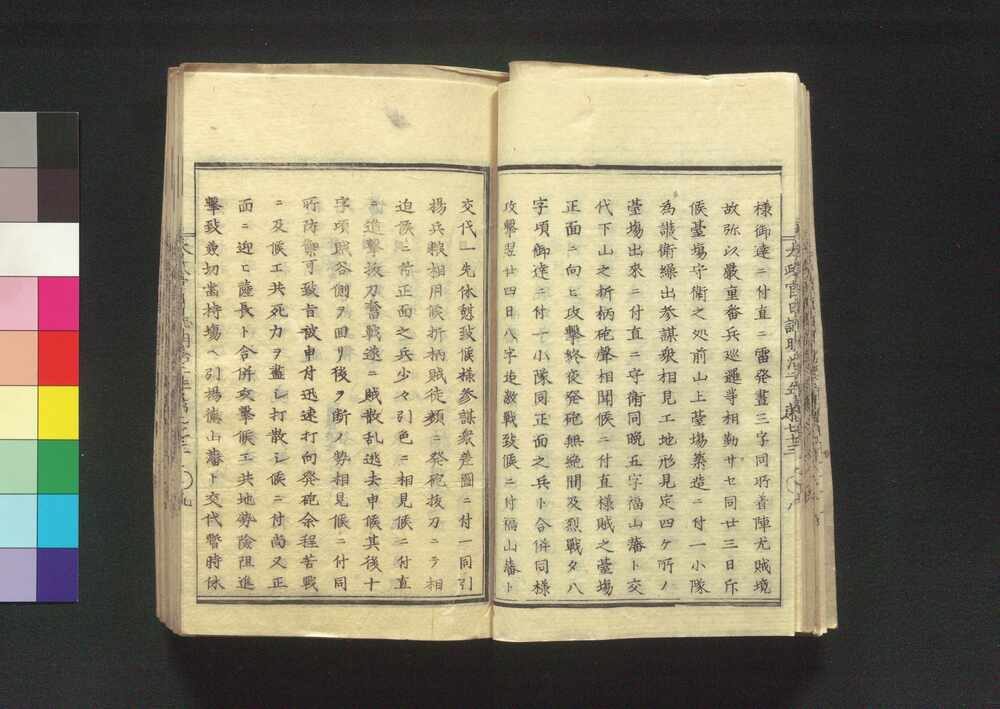 様御達ニ付直ニ雷発晝三字同所着陣尤賊境
故弥以嚴重番兵巡邏等相勤サセ同廿三日斥
候臺場守衛之処前山上臺場築造ニ付一小隊
為護衛繰出参謀衆相見工地形見定四ケ所ノ
臺場出來ニ付直ニ守衛同晩五字福山藩ト交
代下山之折柄砲聲相聞候ニ付直様賊之臺場
正面ニ向ヒ攻撃終夜発砲無絶間及烈戰夕八
字頃御達ニ付一小隊同正面之兵ト合併同様
攻撃翌廿四日八字迠激戰致候ニ付福山藩ト
太政官日誌明治二年第七十三 ○八
交代一先休憩致候様参謀衆差圖ニ付一同引
揚兵粮相用候折柄賊徒頻ニ発砲抜刀ニテ相
迫候ニ付正面之兵少々引色ニ相見候ニ付直
ニ進撃抜刀奮戰遂ニ賊散乱逃去申候其後十
字頃熊谷側ヲ回リ後ヲ断ノ勢相見候ニ付同
所防禦可致旨被申付迅速打向発砲余程苦戰
ニ及候工共死力ヲ盡シ打散シ候ニ付尚又正
面ニ迎ヒ薩長ト合併攻撃候工共地勢險阻進
撃致兼切當持場ヘ引揚徳山藩ト交代暫時休
○九